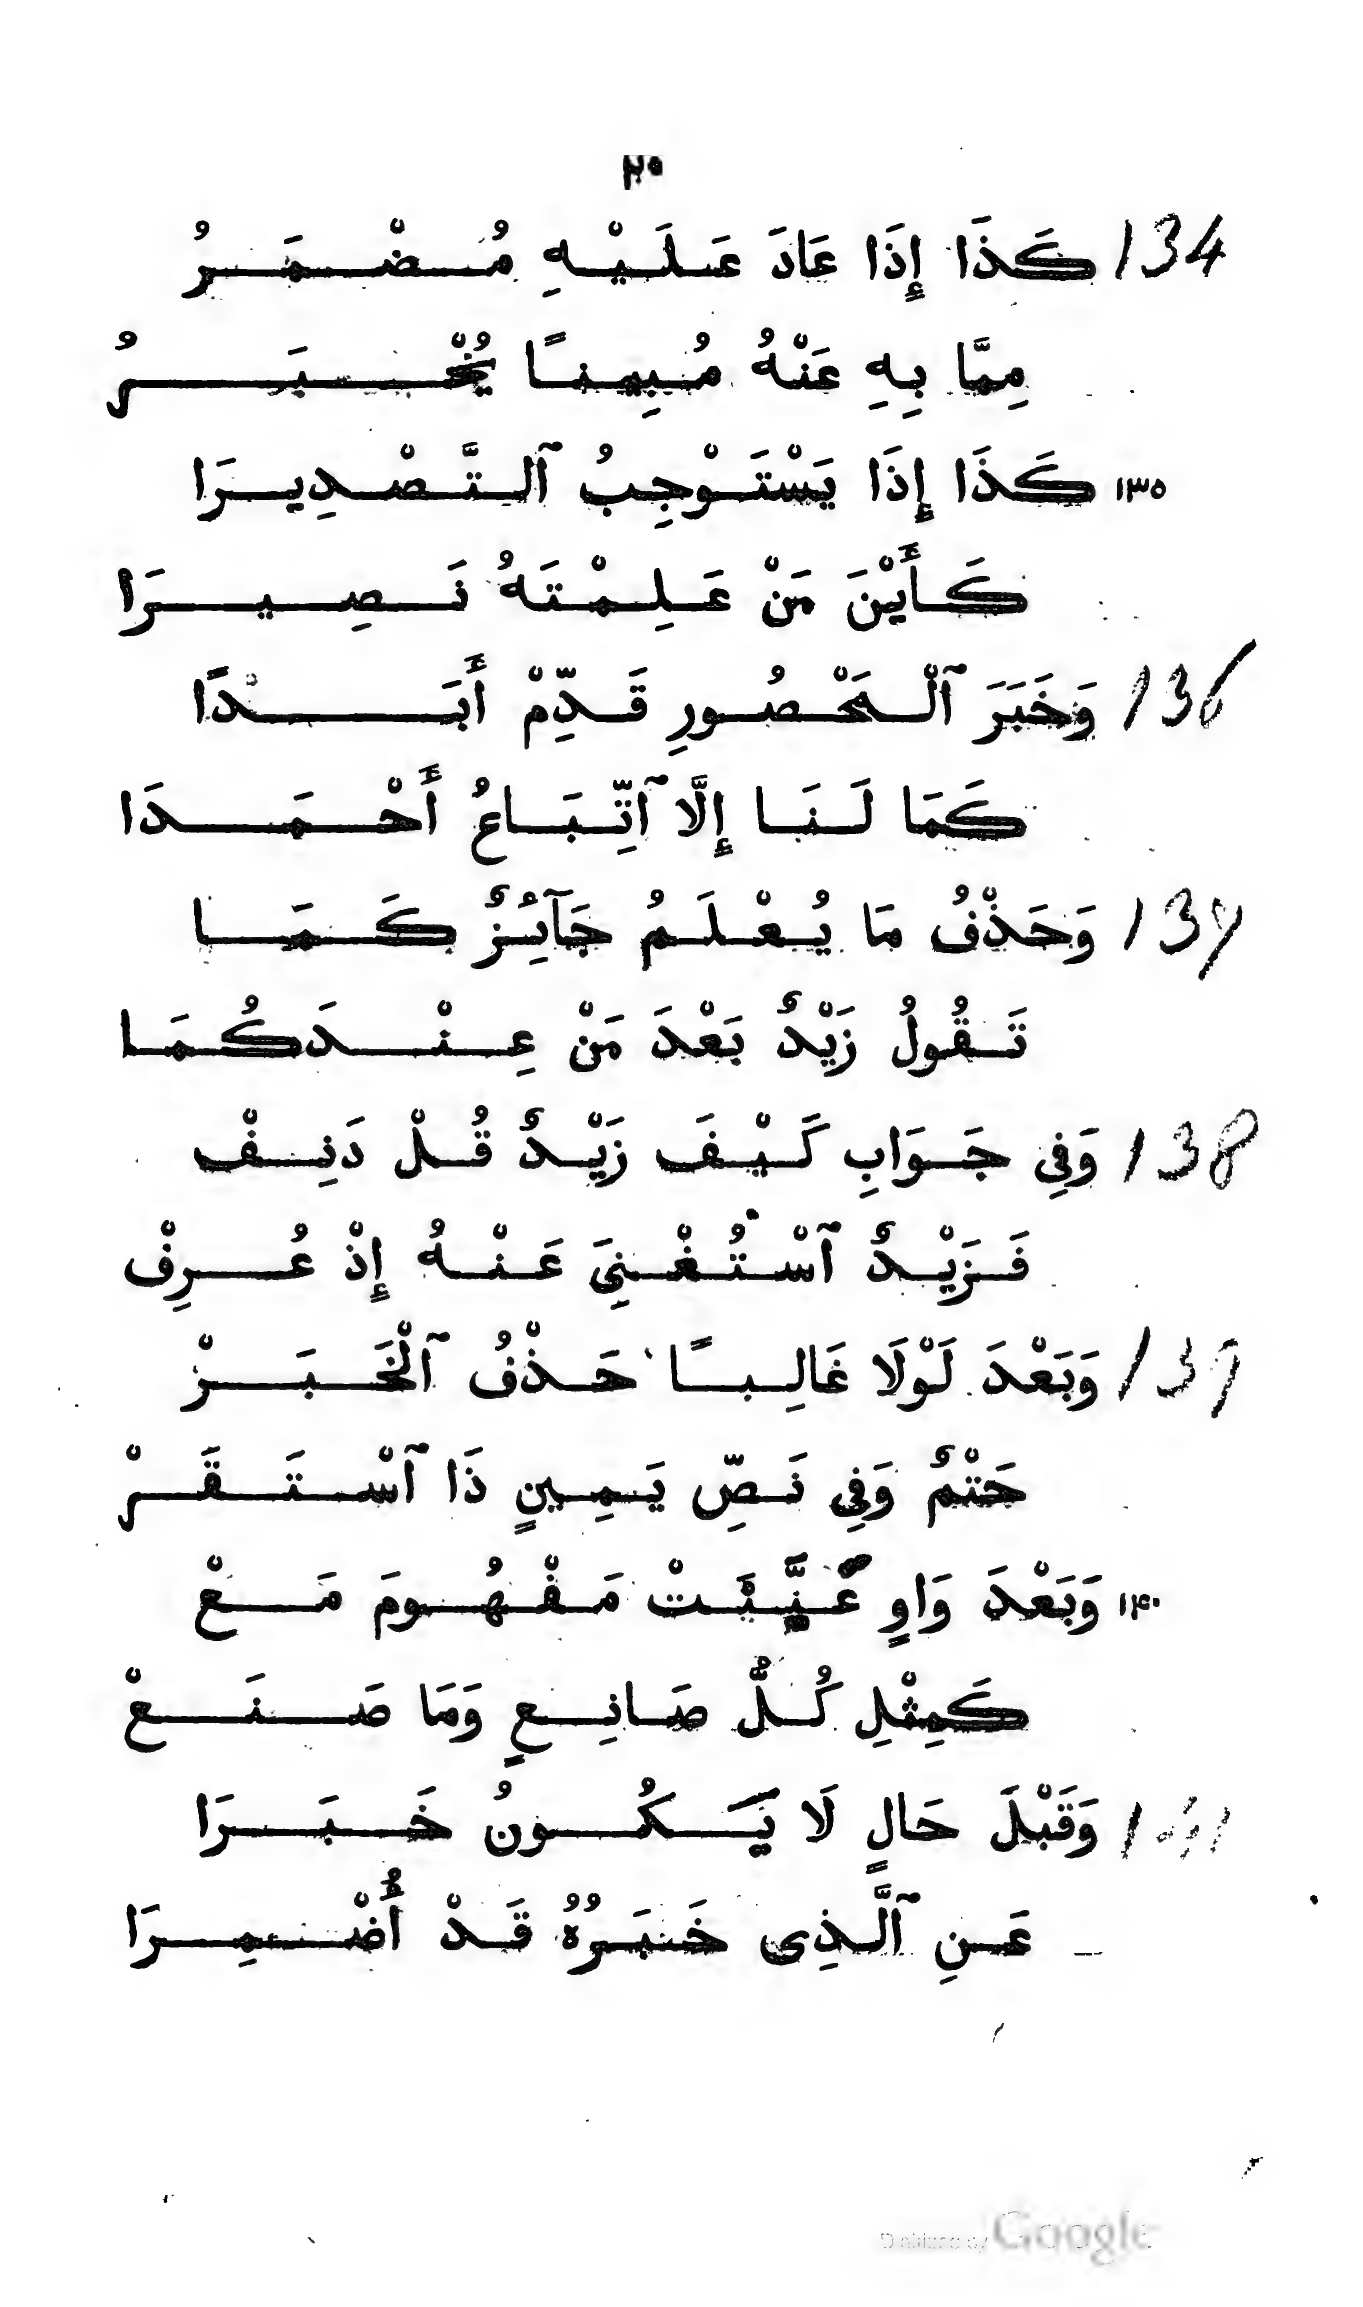 ٢٥
134 كَذَا إِذَا عَادَ عَلَيْهِ مُضْمَرُ
مِمَّا بِهِ عَنْهُ مُبِينًا يُخْبَرُ
١٣٥ كَذَا إِذَا يَسْتَوْجِبُ ٱلتَّصْدِيرَا
كَأَيْنَ مَنْ عَلِمْتَهُ نَصِيرَا
136 وَخَبَرَ ٱلْمَحْصُورِ قَدِّمْ أَبَدًا
كَمَا لَنَا إِلَّا ٱتِّبَاعُ أَحْمَدَا
137 وَحَذْفُ مَا يُعْلَمُ جَآئِزٌ كَمَا
تَقُولُ زَيْدٌ بَعْدَ مَنْ عِنْدَكُمَا
138 وَفِي جَوَابِ كَيْفَ زَيْدٌ قُلْ دَنِفْ
فَزَيْدٌ ٱسْتُغْنِىَ عَنْهُ إِذْ عُرِفْ
139 وَبَعْدَ لَوْلَا غَالِبًا حَذْفُ ٱلْخَبَرْ
حَتْمٌ وَفِي نَصِّ يَمِينٍ ذَا ٱسْتَقَرْ
١٤٠ وَبَعْدَ وَاوٍ عَيَّنَتْ مَفْهُومَ مَعْ
كَمِثْلِ كُلُّ صَانِعٍ وَمَا صَنَعْ
141 وَقَبْلَ حَالٍ لَا يَكُونُ خَبَرَا
عَنِ ٱلَّذِى خَبَرُهُ قَدْ أُضْمِرَا
Digitized by Google